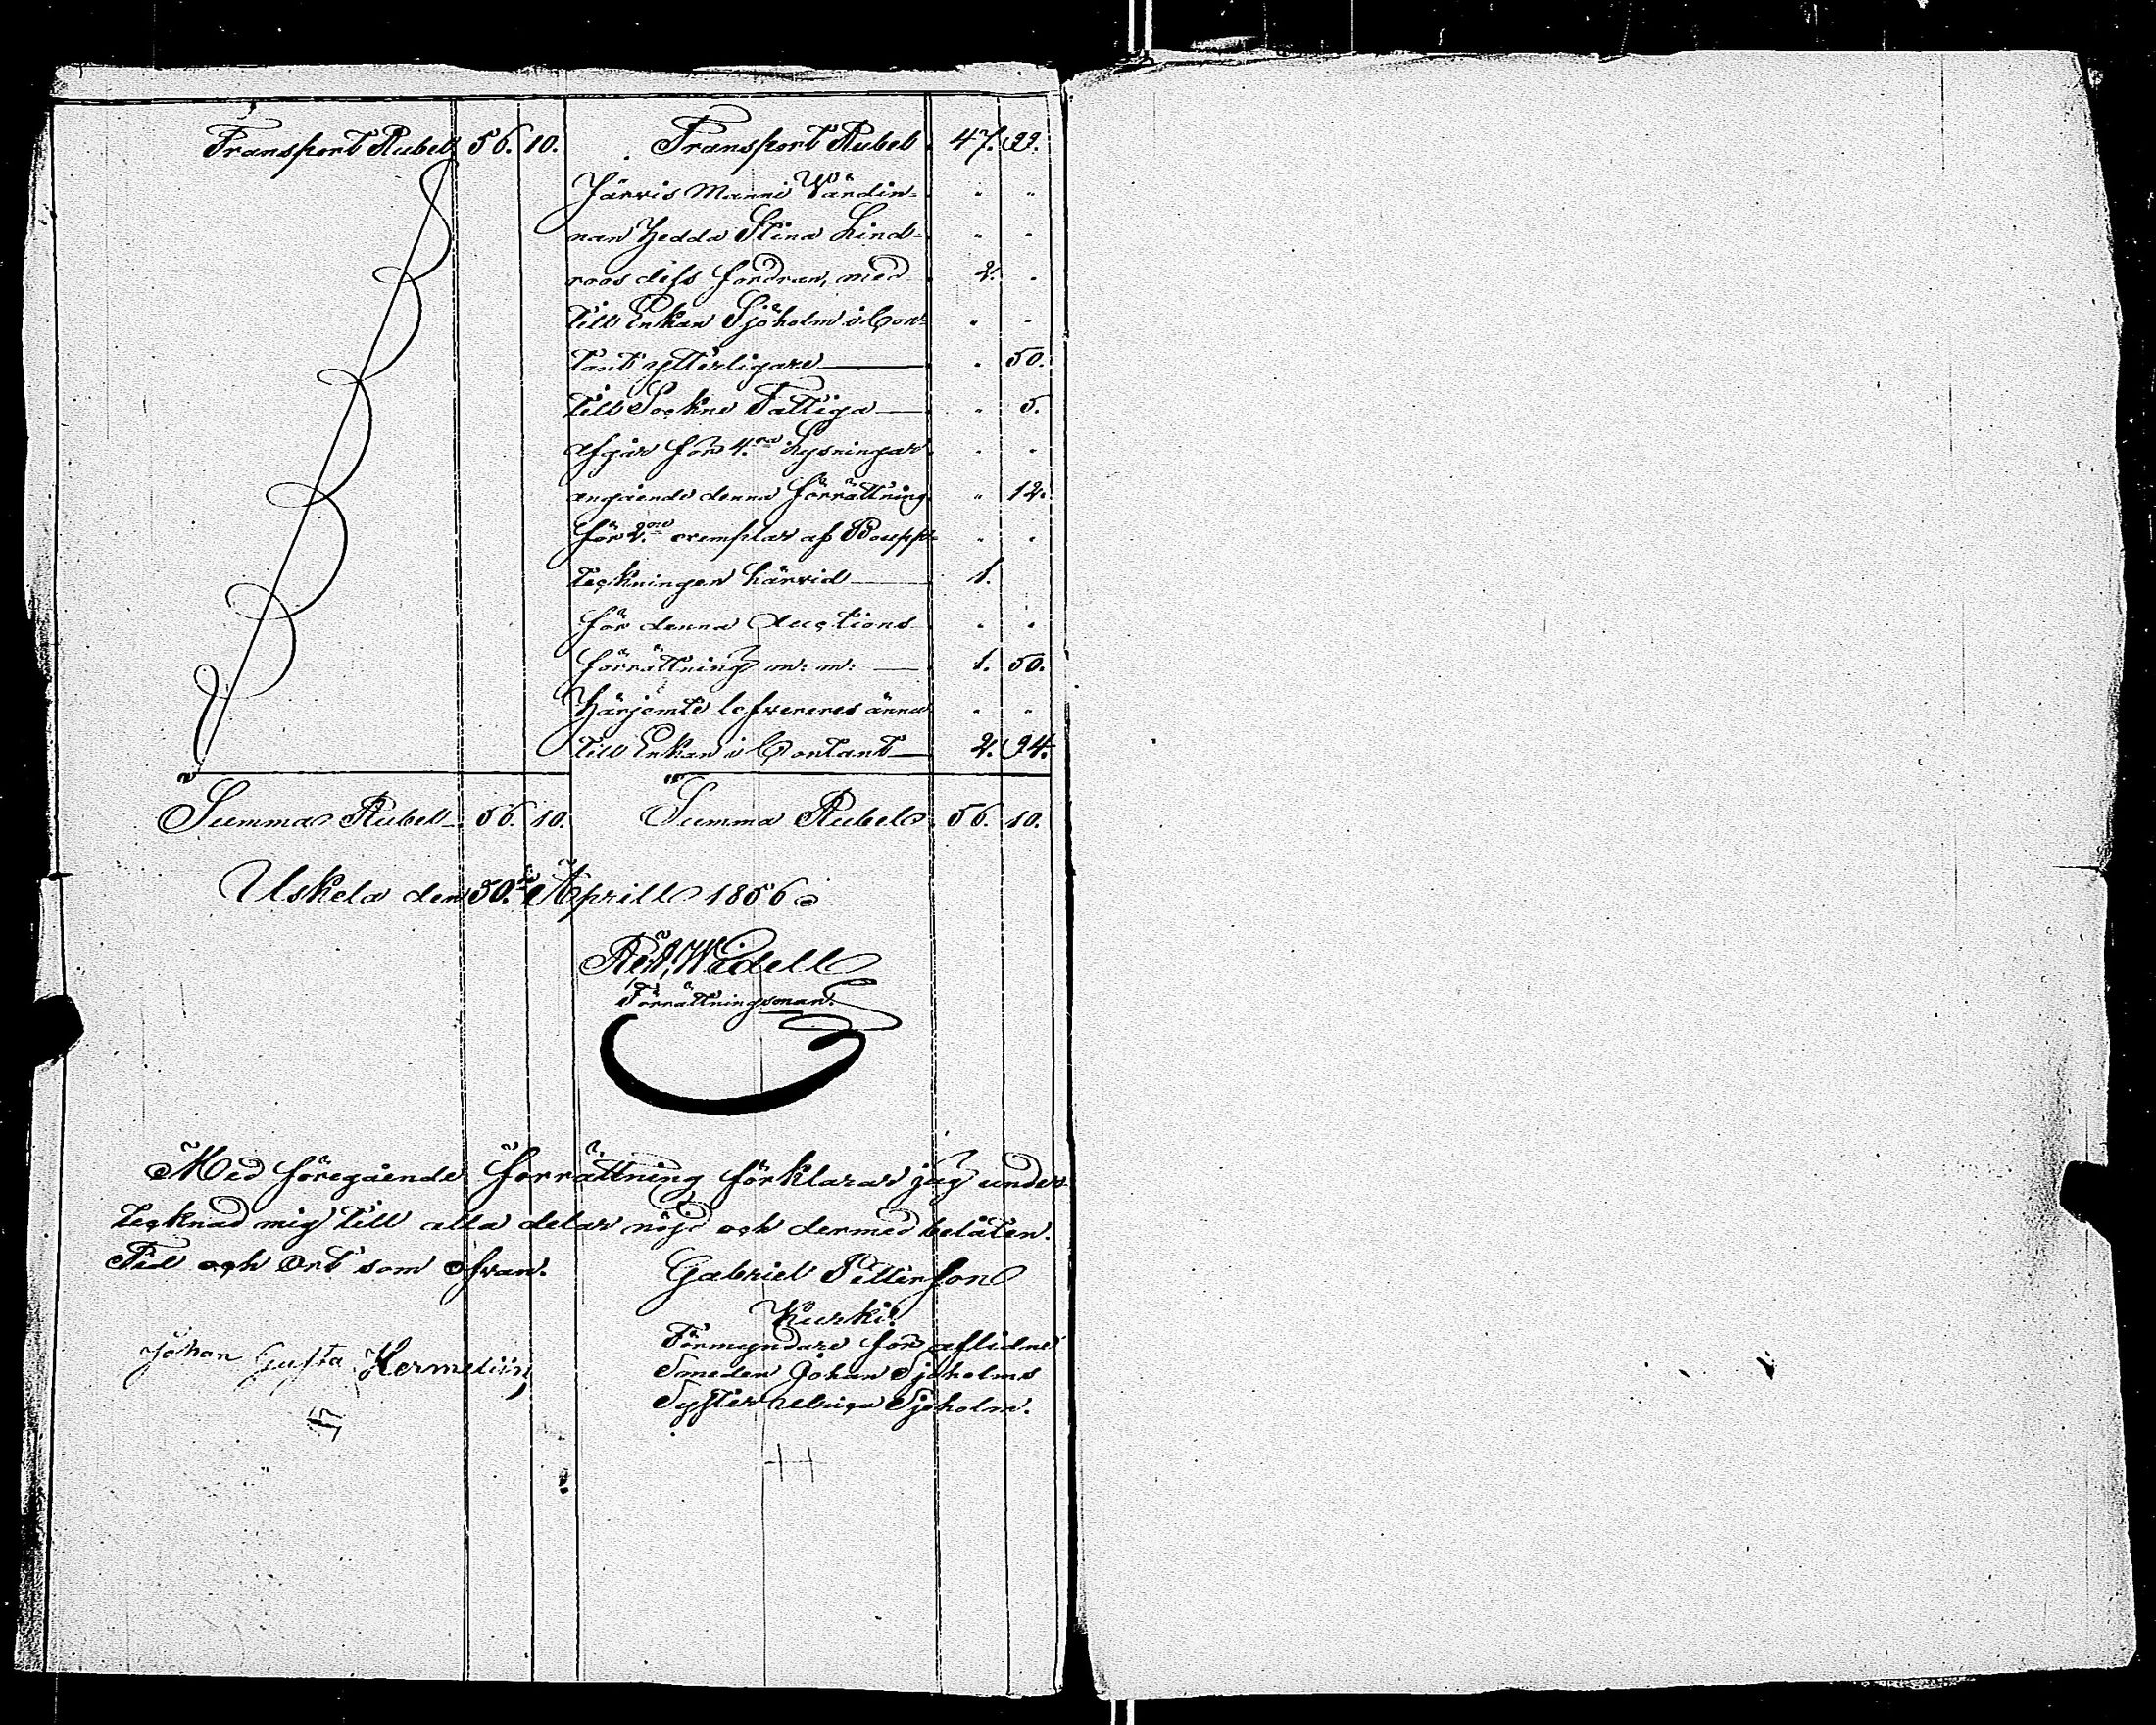 Transport Rubel 56. 10. Transport Rubel 47. 99.
Järvis Manni Värdin= " "
nan Hedda Stina Lind= " "
roos dess fordran, med 2. "
till Enkan Sjöholm i Con= " "
tant ytterligare — " 50.
till Sockne Fattiga — " 5.
afgår för 4.ra Lysningar " "
angående denna förrättning " 12.
för 2.ne exemplar af Boupp= " "
teckningen härvid — 1.
för denna Auctions " "
förrättning m: m: — 1. 50.
Härjemte lefvereres ännu " "
till Enkan i Contant — 2. 94.
Summa Rubel 56. 10. Summa Rubel 56. 10.
Uskela den 30.de Aprill 1856
Widell
Förrättningsman.
Med föregående förrättning förklarar jag under=
tecknad mig till alla delar nöjd och dermed belåten.
Tid och Ort som ofvan. Gabriel Petterson
Kurki
Johan Gusta Hermeliin Förmyndare för aflidne
Smeden Johan Sjöholms
Syster Ulrica Sjöholm.